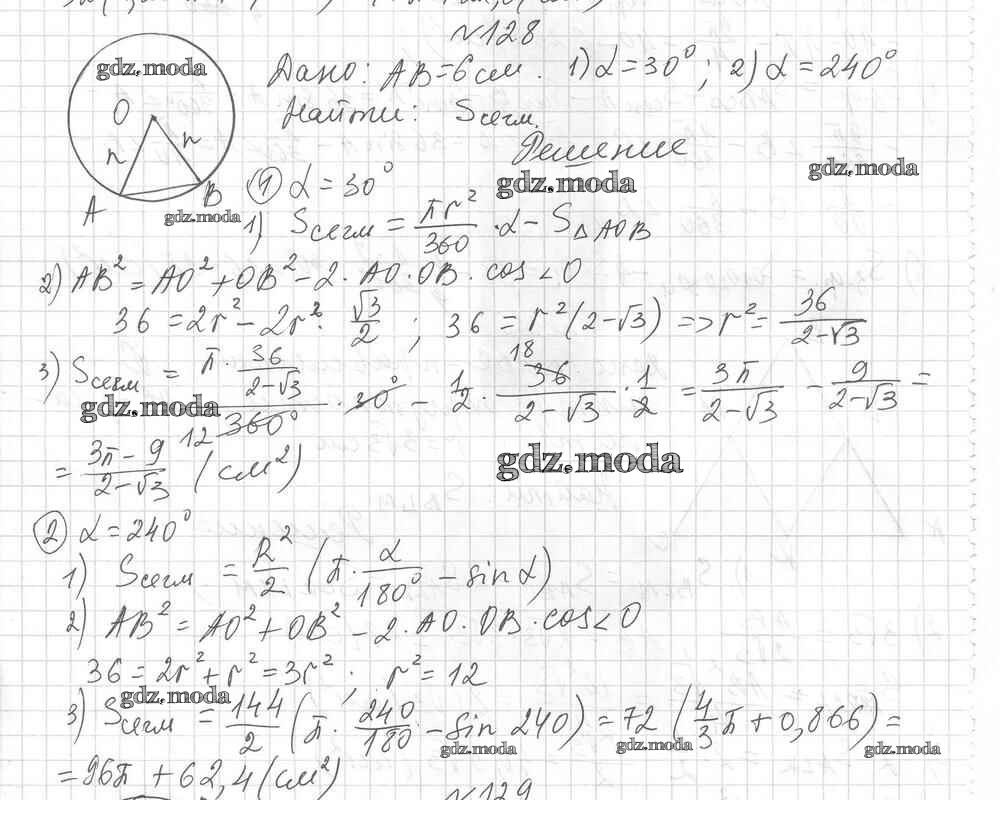 №128
gdz.moda
Дано: AB=6 см. 1) α=30°; 2) α=240°
O
Найти: Sсегм.
r r
Решение
gdz.moda
gdz.moda
A B
gdz.moda
① α=30°
1) Sсегм = πr²/360 · α − S△AOB
2) AB² = AO² + OB² − 2·AO·OB·cos∠O
36 = 2r² − 2r²·√3/2 ; 36 = r²(2−√3) => r² = 36/(2−√3)
3) Sсегм = (π·36/(2−√3))/360° · 30° − 1/2 · 36/(2−√3) · 1/2 = 3π/(2−√3) − 9/(2−√3) =
12 18
gdz.moda
gdz.moda
= (3π−9)/(2−√3) (см²)
② α=240°
1) Sсегм = R²/2 (π·α/180° − sin α)
2) AB² = AO² + OB² − 2·AO·OB·cos∠O
36 = 2r² + r² = 3r² ; r² = 12
gdz.moda
3) Sсегм = 144/2 (π·240/180 − sin 240) = 72 (4/3 π + 0,866) =
gdz.moda
gdz.moda
gdz.moda
= 96π + 62,4 (см²)
№129